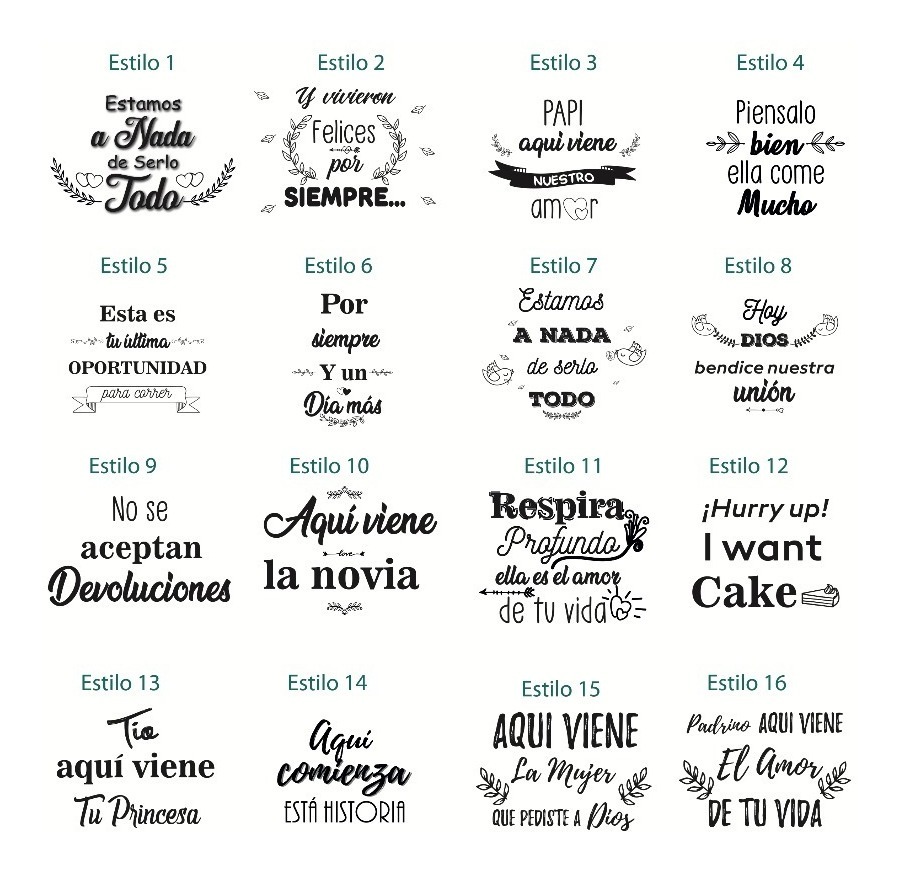 Estilo 1
Estamos
a Nada
de Serlo
Todo
Estilo 2
Y vivieron
Felices
por
SIEMPRE...
Estilo 3
PAPI
aqui viene
NUESTRO
amor
Estilo 4
Piensalo
bien
ella come
Mucho
Estilo 5
Esta es
tu última
OPORTUNIDAD
para correr
Estilo 6
Por
siempre
Y un
Día más
Estilo 7
Estamos
A NADA
de serlo
TODO
Estilo 8
Hoy
DIOS
bendice nuestra
unión
Estilo 9
No se
aceptan
Devoluciones
Estilo 10
Aquí viene
love
la novia
Estilo 11
Respira
Profundo
ella es el amor
de tu vida
Estilo 12
¡Hurry up!
I want
Cake
Estilo 13
Tío
aquí viene
Tu Princesa
Estilo 14
Aquí
comienza
ESTÁ HISTORIA
Estilo 15
AQUI VIENE
La Mujer
QUE PEDISTE A Dios
Estilo 16
Padrino AQUI VIENE
El Amor
DE TU VIDA